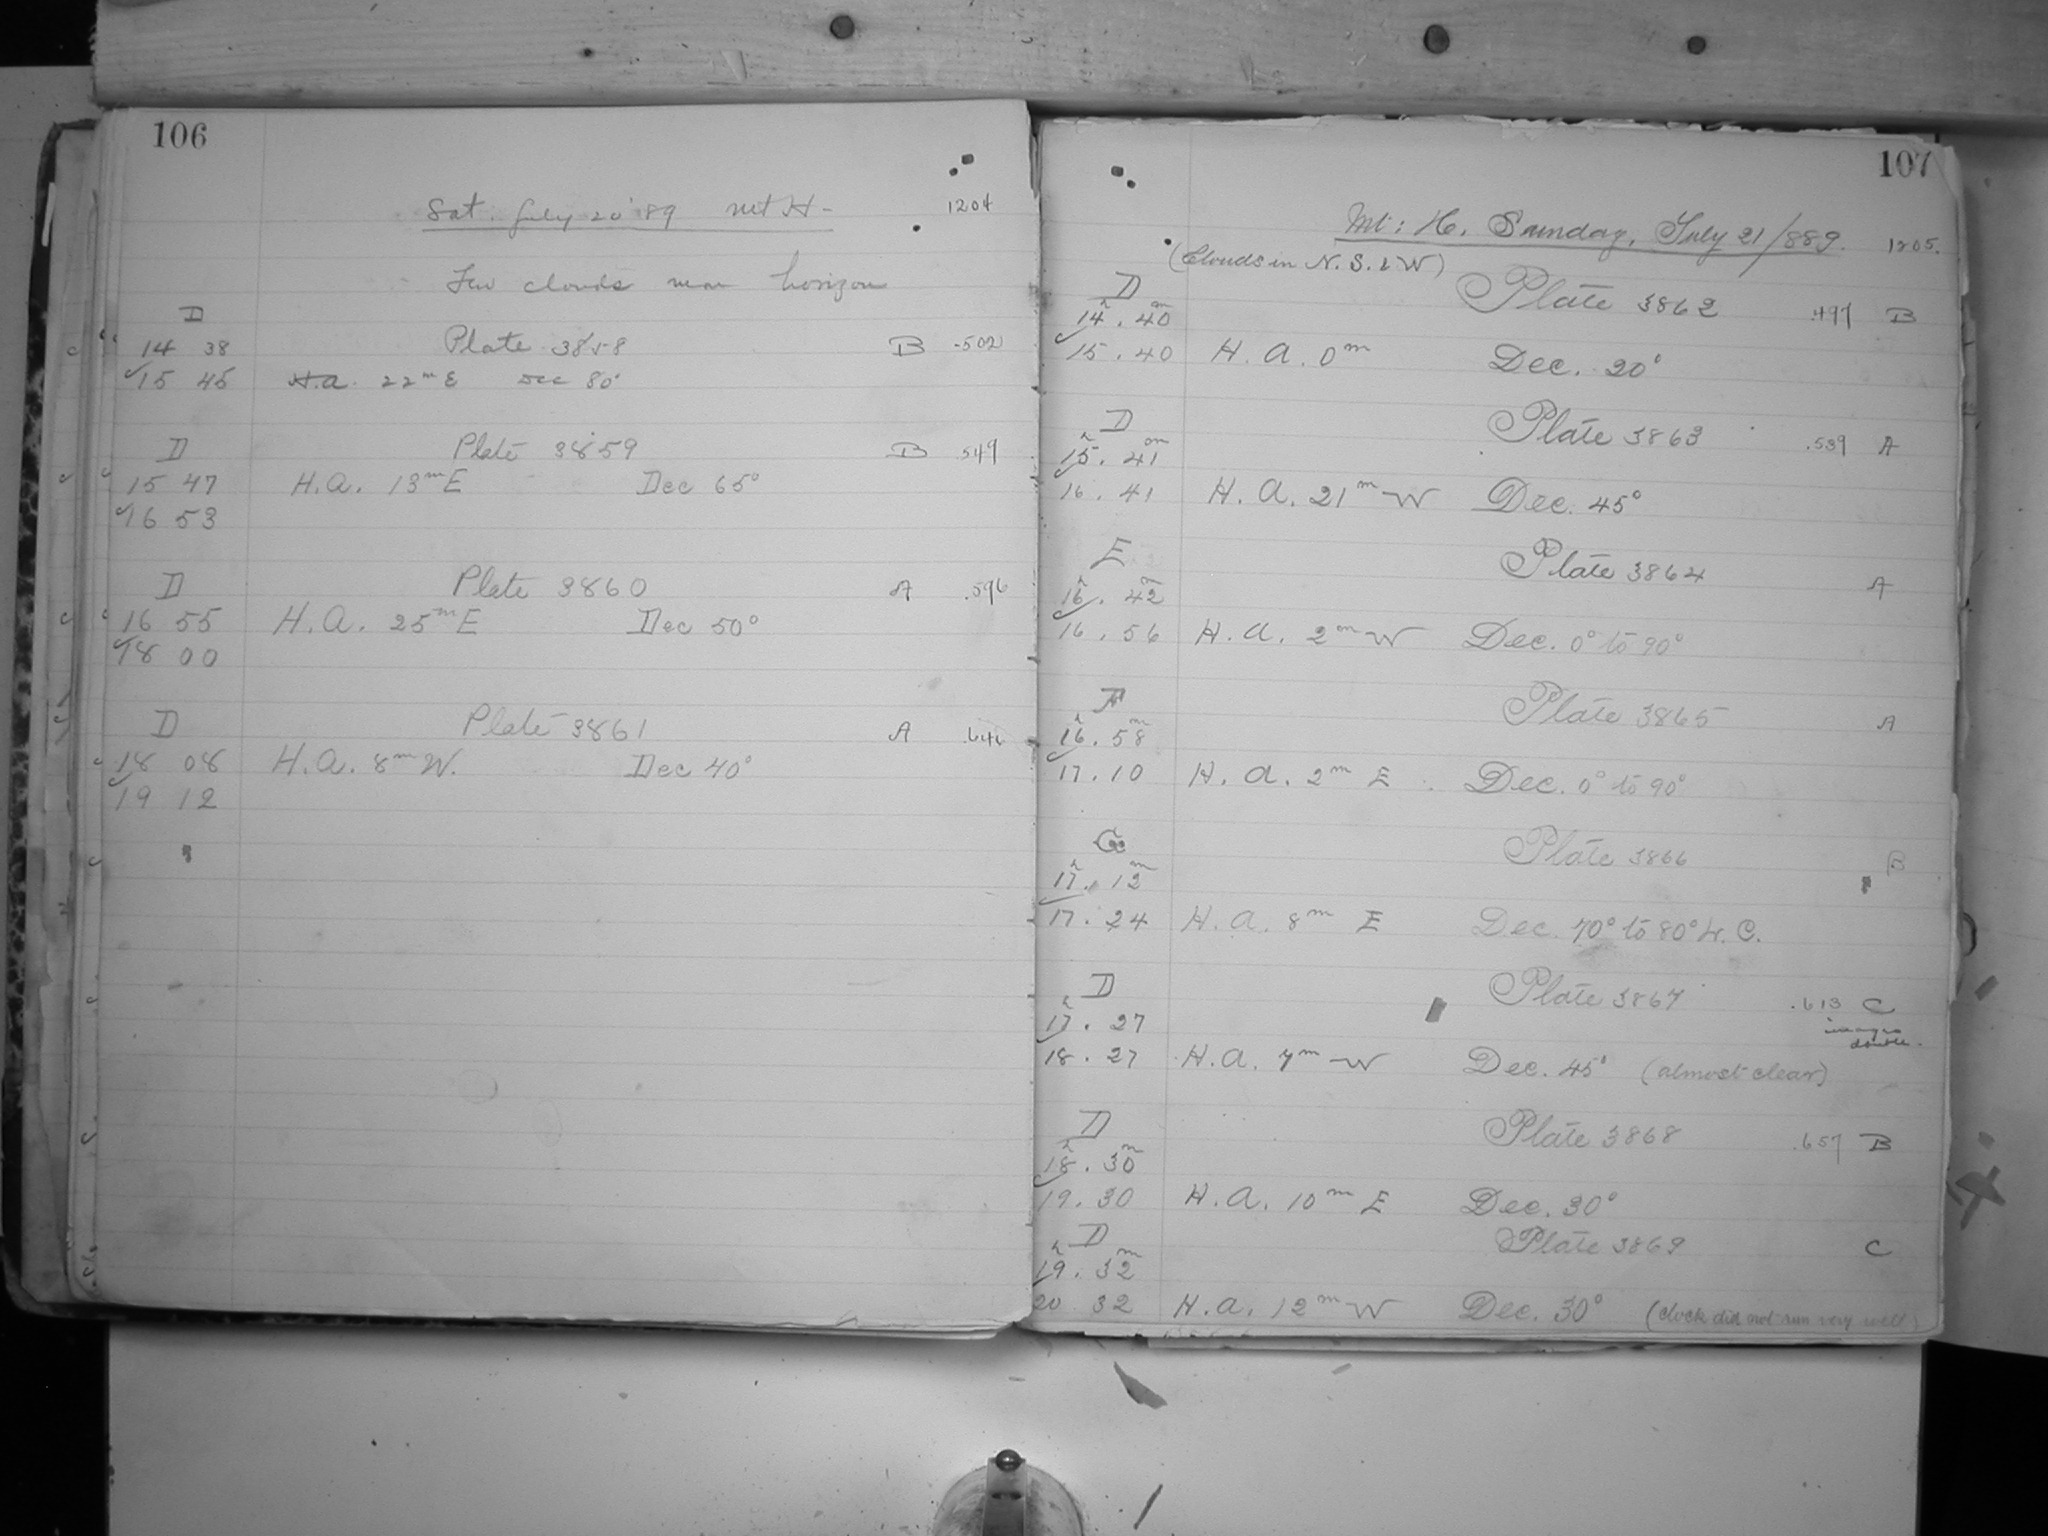 106
Sat. July 20 '89 Mt H- 1204
Few clouds near horizon
D
14 38 Plate 3858 B .502
15 45 H.a. 22ᵐ E Dec 80°
D Plate 3859 B .549
15 47 H.a. 13ᵐ E Dec 65°
16 53
D Plate 3860 A .596
16 55 H.a. 25ᵐ E Dec 50°
18 00
D Plate 3861 A
18 08 H.a. 8ᵐ W. Dec 40°
19 12
107
Mt: H. Sunday, July 21/889. 1205.
(Clouds in N. S. & W)
D Plate 3862 .497 B
14ʰ. 40ᵐ
15. 40 H. a. 0ᵐ Dec. 20°
D Plate 3863 .539 A
15ʰ. 41ᵐ
16. 41 H. a. 21ᵐ W Dec. 45°
E Plate 3864 A
16ʰ. 42ᵐ
16. 56 H. a. 2ᵐ W Dec. 0° to 90°
F Plate 3865 A
16ʰ. 58ᵐ
17. 10 H. a. 2ᵐ E Dec. 0° to 90°
G Plate 3866 B
17ʰ. 12ᵐ
17. 24 H. a. 8ᵐ E Dec. 70° to 80° L. C.
D Plate 3867 .613 C
17ʰ. 27 images double.
18. 27 H. a. 7ᵐ W Dec. 45° (almost clear)
D Plate 3868 .657 B
18ʰ. 30ᵐ
19. 30 H. a. 10ᵐ E Dec. 30°
D Plate 3869 C
19ʰ. 32ᵐ
20 32 H. a. 12ᵐ W Dec. 30° (Clock did not run very well)